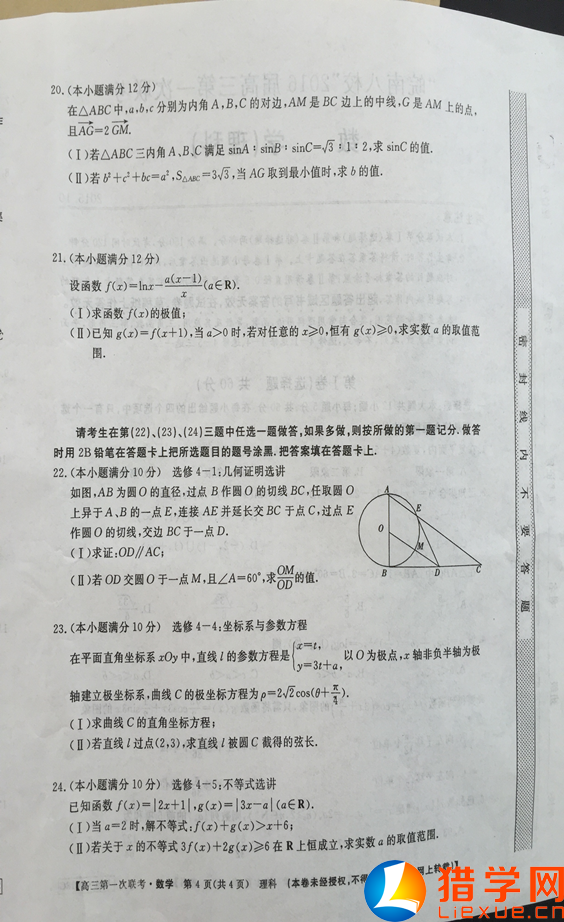 20.(本小题满分12分)
在△ABC中,a,b,c分别为内角A,B,C的对边,AM是BC边上的中线,G是AM上的点,
且AG=2GM.
(Ⅰ)若△ABC三内角A、B、C满足sinA∶sinB∶sinC=√3∶1∶2,求sinC的值.
(Ⅱ)若b²+c²+bc=a²,S△ABC=3√3,当AG取到最小值时,求b的值.
21.(本小题满分12分)
设函数f(x)=lnx-a(x-1)/x(a∈R).
(Ⅰ)求函数f(x)的极值;
(Ⅱ)已知g(x)=f(x+1),当a>0时,若对任意的x≥0,恒有g(x)≥0,求实数a的取值范
围.
请考生在第(22)、(23)、(24)三题中任选一题做答,如果多做,则按所做的第一题记分.做答
时用2B铅笔在答题卡上把所选题目的题号涂黑.把答案填在答题卡上.
22.(本小题满分10分) 选修4-1:几何证明选讲
如图,AB为圆O的直径,过点B作圆O的切线BC,任取圆O
上异于A、B的一点E,连接AE并延长交BC于点C,过点E
作圆O的切线,交边BC于一点D.
(Ⅰ)求证:OD∥AC;
(Ⅱ)若OD交圆O于一点M,且∠A=60°,求OM/OD的值.
A
E
O
M
B
D
C
23.(本小题满分10分) 选修4-4:坐标系与参数方程
在平面直角坐标系xOy中,直线l的参数方程是{x=t,
y=3t+a,以O为极点,x轴非负半轴为极
轴建立极坐标系,曲线C的极坐标方程为ρ=2√2cos(θ+π/4).
(Ⅰ)求曲线C的直角坐标方程;
(Ⅱ)若直线l过点(2,3),求直线l被圆C截得的弦长.
24.(本小题满分10分) 选修4-5:不等式选讲
已知函数f(x)=|2x+1|,g(x)=|3x-a|(a∈R).
(Ⅰ)当a=2时,解不等式:f(x)+g(x)>x+6;
(Ⅱ)若关于x的不等式3f(x)+2g(x)≥6在R上恒成立,求实数a的取值范围.
【高三第一次联考·数学 第4页(共4页) 理科 (本卷未经授权,不得 网上转载)】
密封线内不要答题
猎学网
Liexue.cn